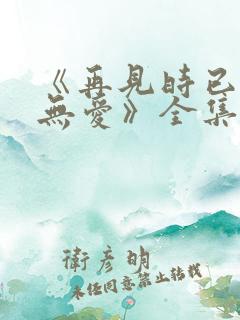 《再見時已
無愛》全集
衛彥明
未经同意禁止转载